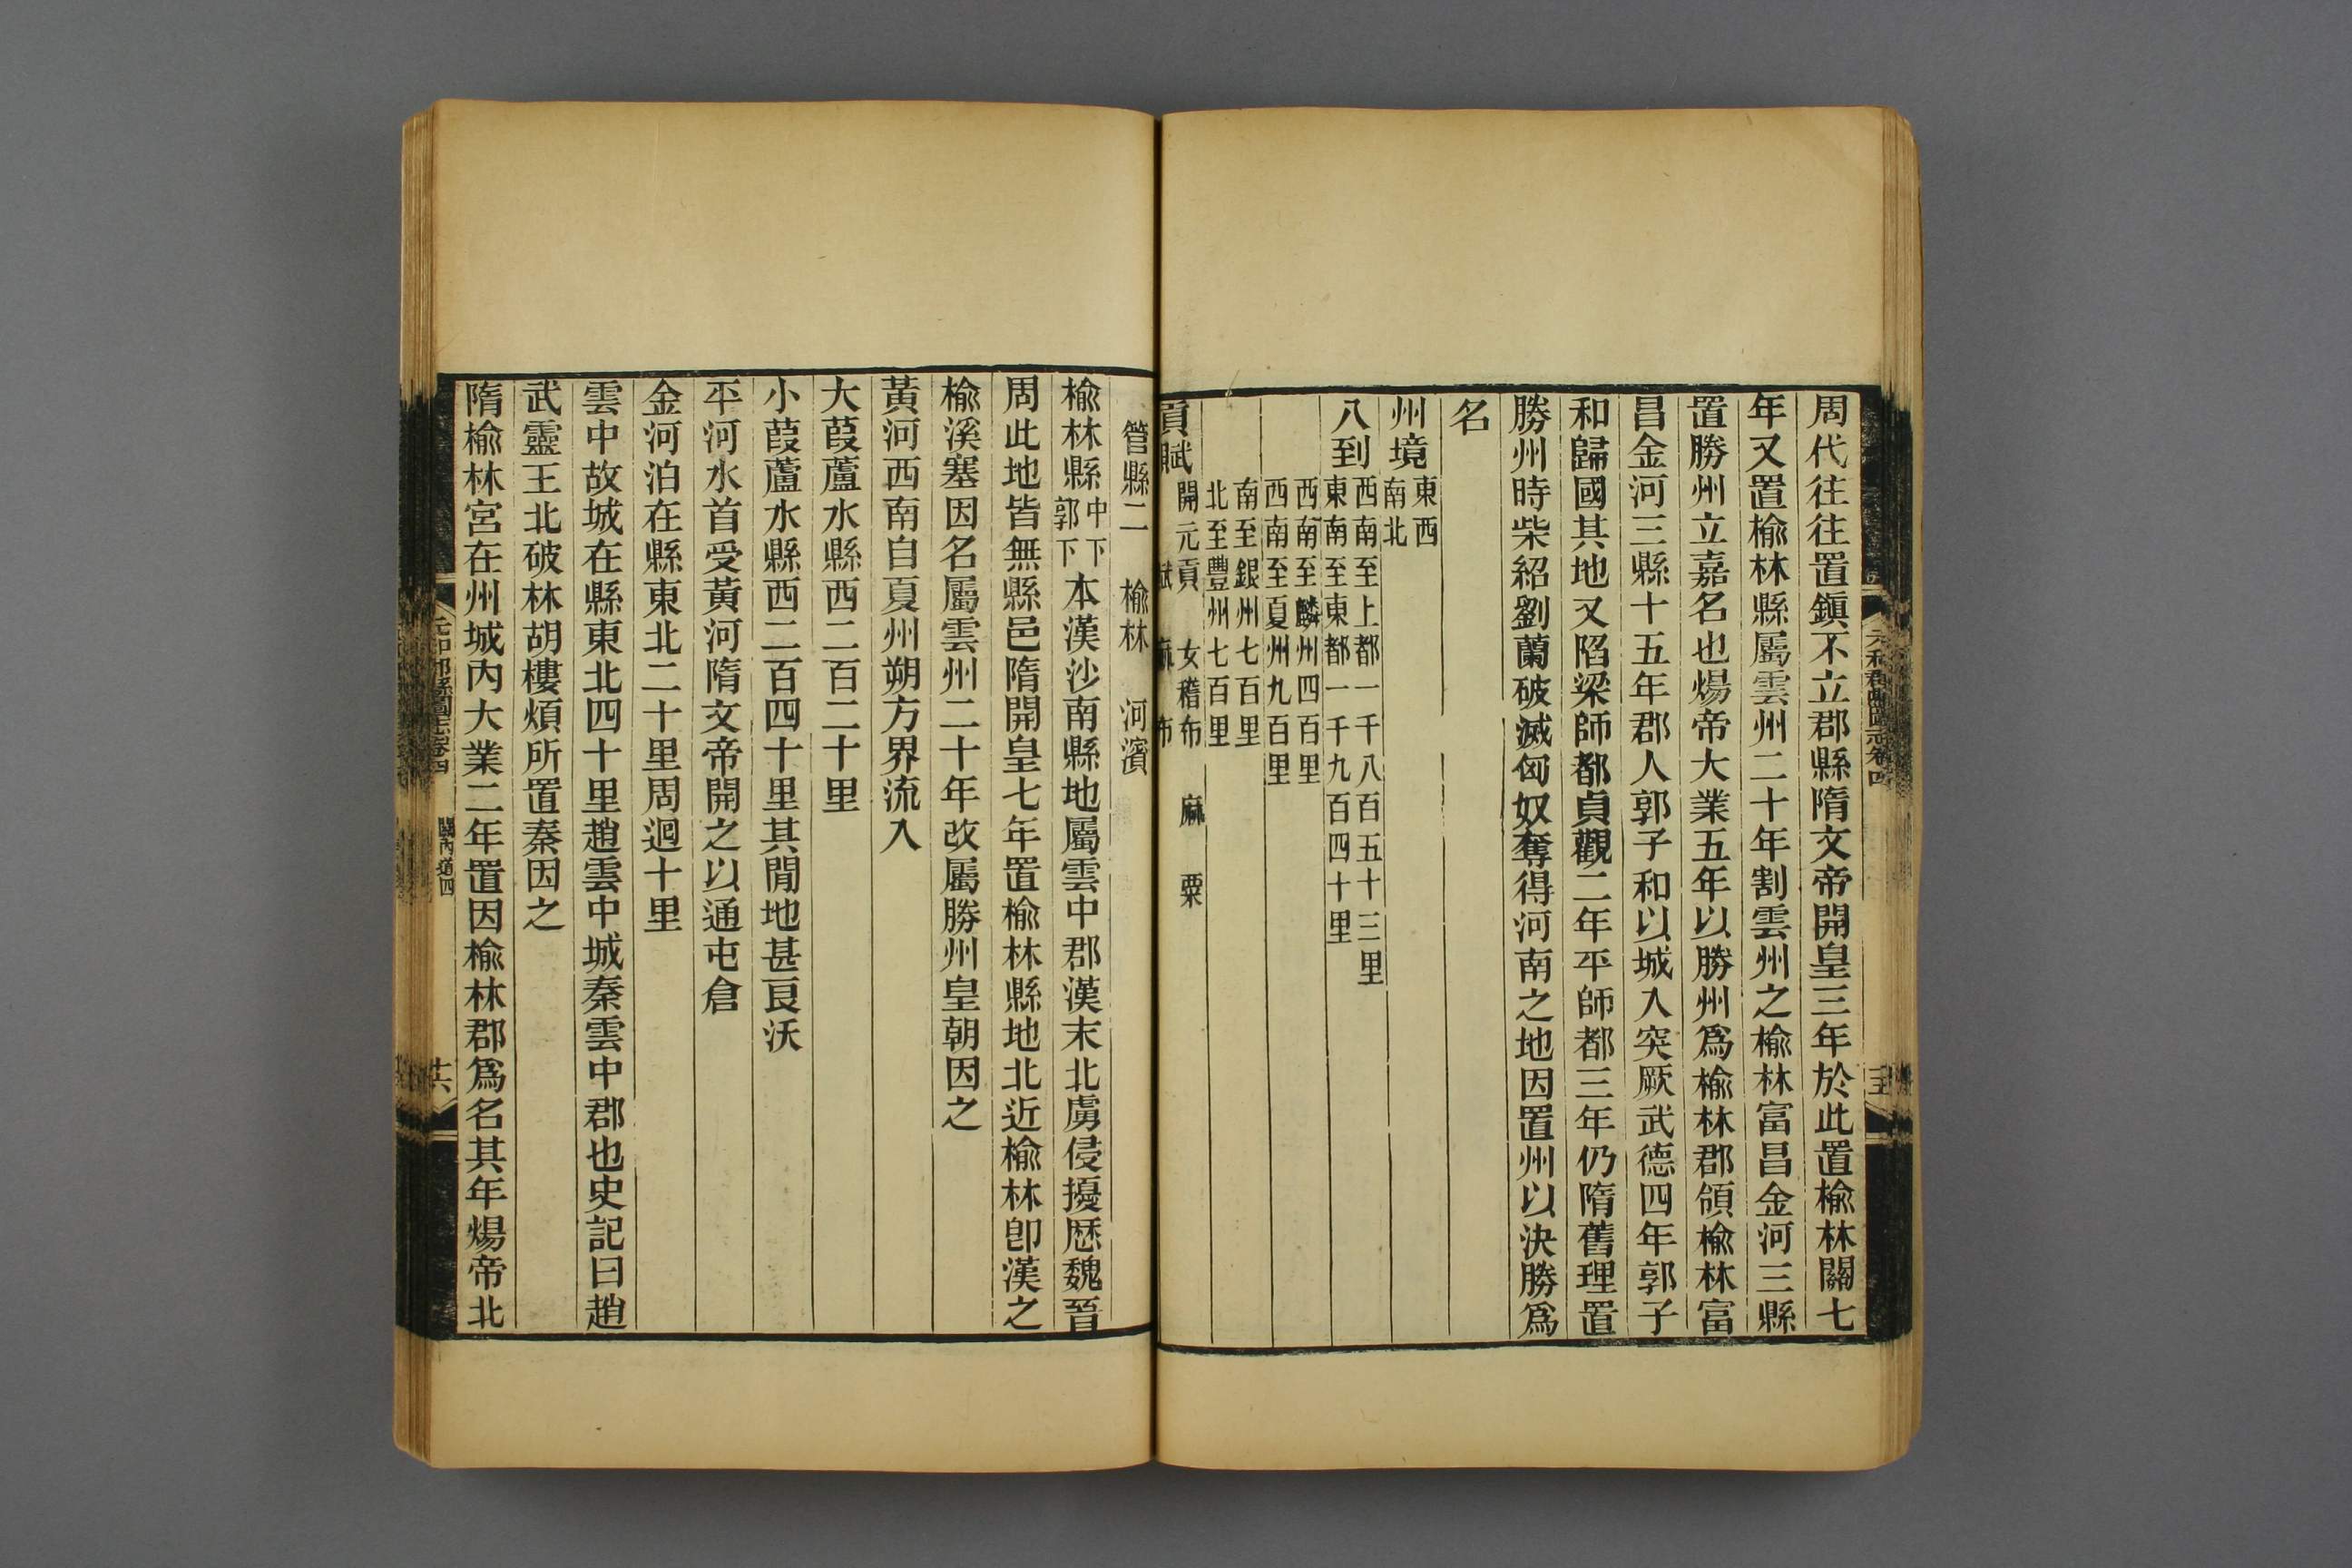 周代往往置鎭不立郡縣隋文帝開皇三年於此置楡林關七
年又置楡林縣屬雲州二十年割雲州之楡林富昌金河三縣
置勝州立嘉名也煬帝大業五年以勝州爲楡林郡領楡林富
昌金河三縣十五年郡人郭子和以城入突厥武德四年郭子
和歸國其地又陷梁師都貞觀二年平師都三年仍隋舊理置
勝州時柴紹劉蘭破滅匈奴奪得河南之地因置州以決勝爲
名
州境東西
南北
八到西南至上都一千八百五十三里
東南至東都一千九百四十里
西南至麟州四百里
西南至夏州九百里
南至銀州七百里
北至豐州七百里
貢賦開元貢 女稽布 麻 粟
賦 麻 布
管縣二 楡林 河濱
楡林縣中下
郭下本漢沙南縣地屬雲中郡漢末北虜侵擾歷魏晉
周此地皆無縣邑隋開皇七年置楡林縣地北近楡林卽漢之
楡溪塞因名屬雲州二十年改屬勝州皇朝因之
黃河西南自夏州朔方界流入
大葭蘆水縣西二百二十里
小葭蘆水縣西二百四十里其閒地甚良沃
平河水首受黃河隋文帝開之以通屯倉
金河泊在縣東北二十里周迴十里
雲中故城在縣東北四十里趙雲中城秦雲中郡也史記曰趙
武靈王北破林胡樓煩所置秦因之
隋楡林宮在州城內大業二年置因楡林郡爲名其年煬帝北
元和郡縣圖志卷四 關內道四
十六